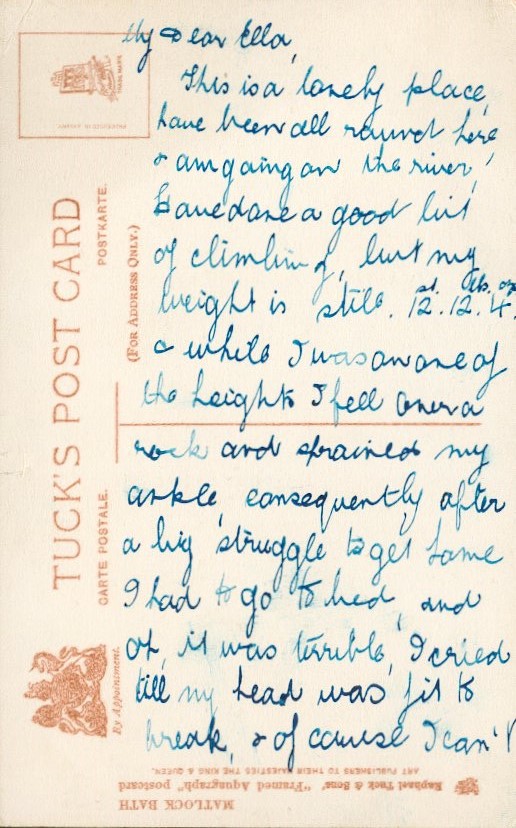 My Dear Ella,
This is a lonely place,
have been all round here
& am going on the river,
Have done a good bit
of climbing, but my
weight is still. 12.12.4.
st. lbs. ozs
& while I was on one of
the heights I fell over a
rock and sprained my
ankle, consequently after
a big struggle to get home
I had to go to bed, and
oh, it was terrible, I cried
till my head was fit to
break, & of course I can't
TUCK'S POST CARD
CARTE POSTALE.
POSTKARTE.
(FOR ADDRESS ONLY.)
By Appointment.
TRADE MARK
MATLOCK BATH
Raphael Tuck & Sons' "Framed Aquagraph" postcard
ART PUBLISHERS TO THEIR MAJESTIES THE KING & QUEEN.